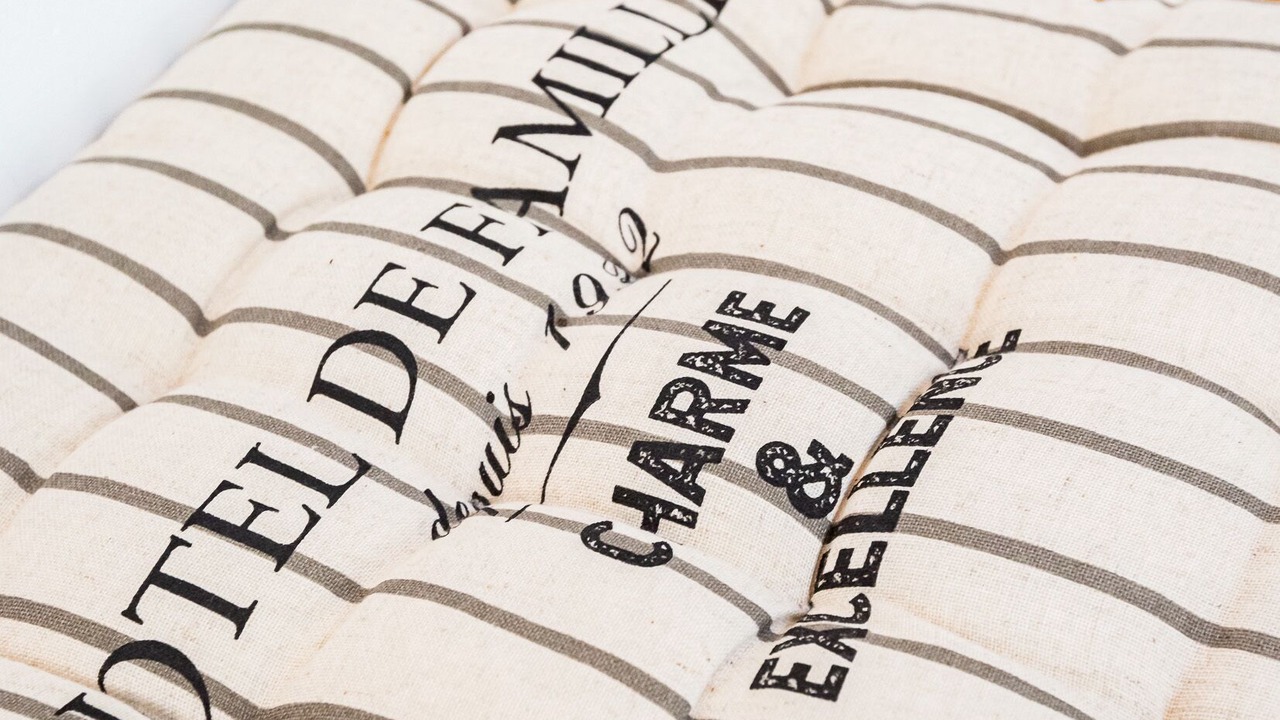 HOTEL DE FAMILL
depuis
CHARME
&
EXCELLENCE